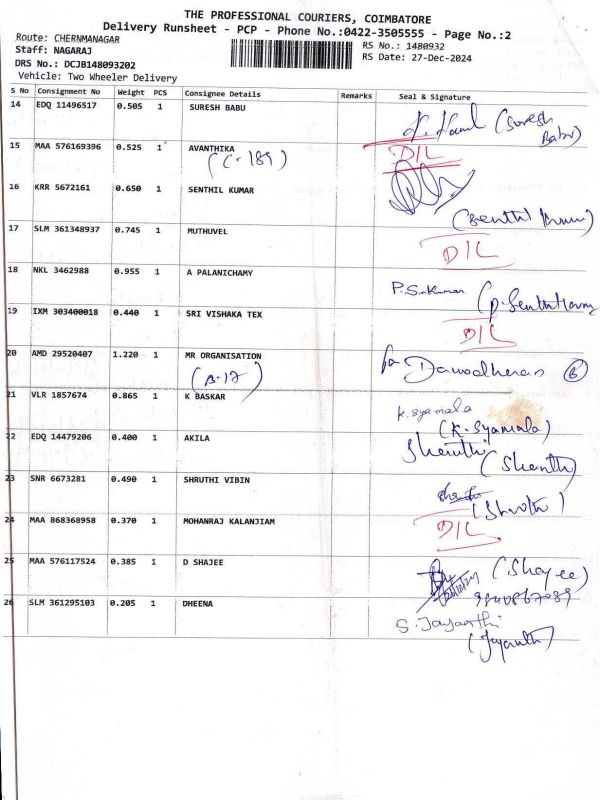 THE PROFESSIONAL COURIERS, COIMBATORE
Delivery Runsheet - PCP - Phone No.:0422-3505555 - Page No.:2
Route: CHERNMANAGAR
RS No.: 1480932
Staff: NAGARAJ
RS Date: 27-Dec-2024
DRS No.: DCJB148093202
Vehicle: Two Wheeler Delivery
S No Consignment No Weight PCS Consignee Details Remarks Seal & Signature
14 EDQ 11496517 0.505 1 SURESH BABU
(Suresh
Babu)
15 MAA 576169396 0.525 1 AVANTHIKA D/L
(C-189)
16 KRR 5672161 0.650 1 SENTHIL KUMAR
(Senthil Kumar)
17 SLM 361348937 0.745 1 MUTHUVEL
D/L
18 NKL 3462988 0.955 1 A PALANICHAMY
19 IXM 303400018 0.440 1 SRI VISHAKA TEX
D/L
20 AMD 29520407 1.220 1 MR ORGANISATION
(B-17)
21 VLR 1857674 0.865 1 K BASKAR
K.Syamala
(K.Syamala)
22 EDQ 14479206 0.400 1 AKILA
Shanthi
(Shanthi)
23 SNR 6673281 0.490 1 SHRUTHI VIBIN
(Shruthi)
24 MAA 868368958 0.370 1 MOHANRAJ KALANJIAM
D/L
25 MAA 576117524 0.385 1 D SHAJEE
(Shajee)
26 SLM 361295103 0.205 1 DHEENA
S.Jayanthi
(Jayanthi)